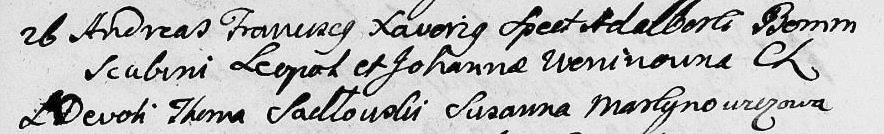 26 Andreas Francisq Xaveriq Spect Adalberti Bomm
Scabini Leopol et Johannæ Weninowna CL
Devoti Thoma Sadłowski Susanna Martynowiczowa